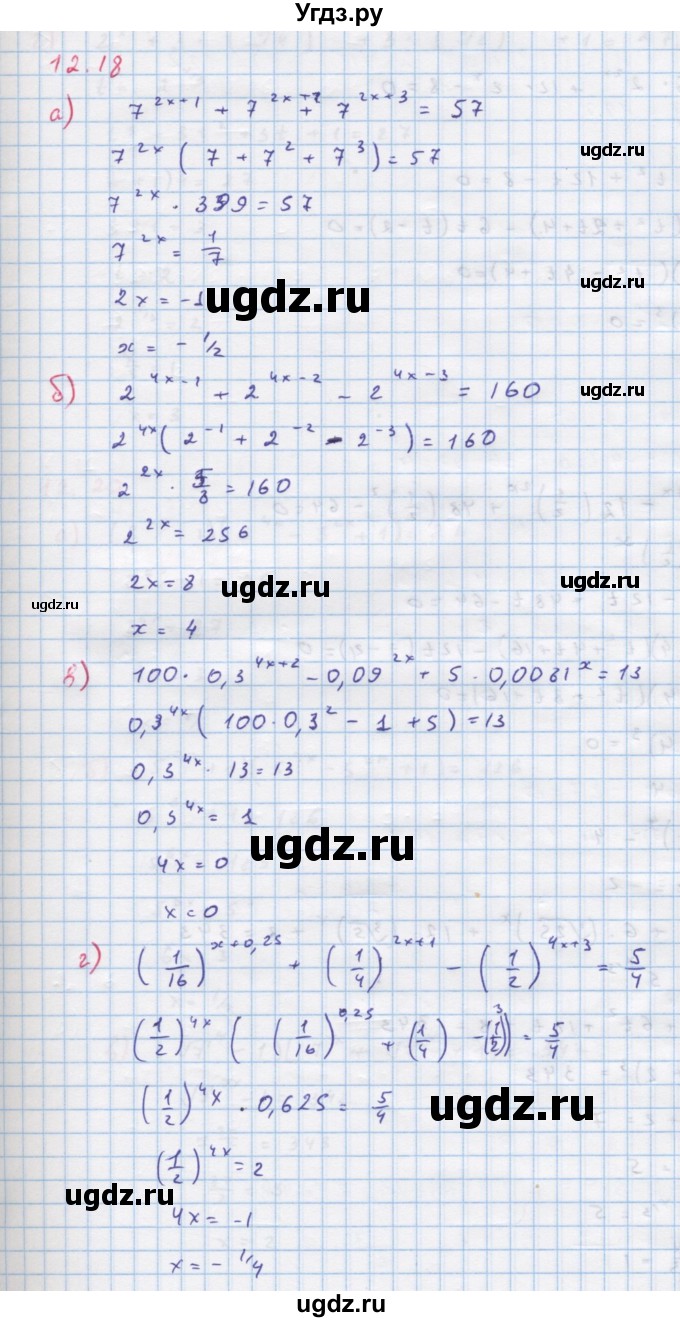 Угдз.ру
12.18
а) 7^(2x+1) + 7^(2x+2) + 7^(2x+3) = 57
ugdz.ru
7^(2x) (7 + 7^2 + 7^3) = 57
ugdz.ru
7^(2x) · 399 = 57
7^(2x) = 1/7
ugdz.ru
2x = -1
ugdz.ru
x = - 1/2
б) 2^(4x-1) + 2^(4x-2) - 2^(4x-3) = 160
ugdz.ru
2^(4x) (2^(-1) + 2^(-2) - 2^(-3)) = 160
ugdz.ru
2^(2x) · 5/8 = 160
2^(2x) = 256
2x = 8
ugdz.ru
ugdz.ru
ugdz.ru
x = 4
в) 100 · 0,3^(4x+2) - 0,09^(2x) + 5 · 0,0081^x = 13
0,3^(4x) (100 · 0,3^2 - 1 + 5) = 13
0,3^(4x) · 13 = 13
0,3^(4x) = 1
ugdz.ru
4x = 0
x = 0
г) (1/16)^(x+0,25) + (1/4)^(2x+1) - (1/2)^(4x+3) = 5/4
(1/2)^(4x) ((1/16)^(0,25) + (1/4) - (1/2)^3) = 5/4
(1/2)^(4x) · 0,625 = 5/4
ugdz.ru
(1/2)^(4x) = 2
ugdz.ru
4x = -1
x = - 1/4
ugdz.ru